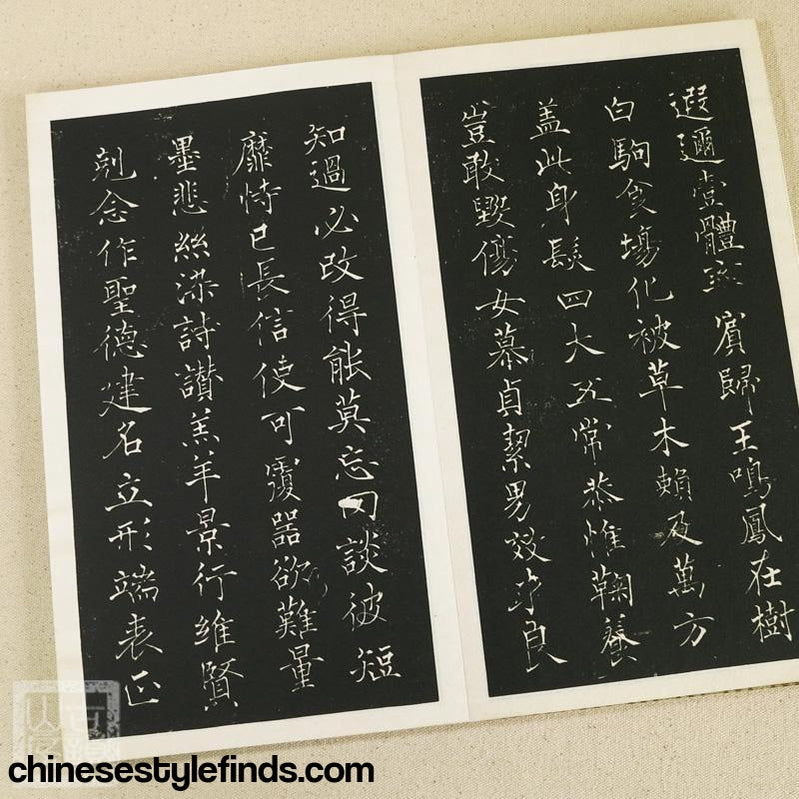 遐邇壹體率賓歸王鳴鳳在樹
白駒食場化被草木賴及萬方
盖此身髮四大五常恭惟鞠養
豈敢毀傷女慕貞絜男效才良
知過必改得能莫忘罔談彼短
靡恃己長信使可覆器欲難量
墨悲絲染詩讃羔羊景行維賢
剋念作聖德建名立形端表正
chinesestylefinds.com